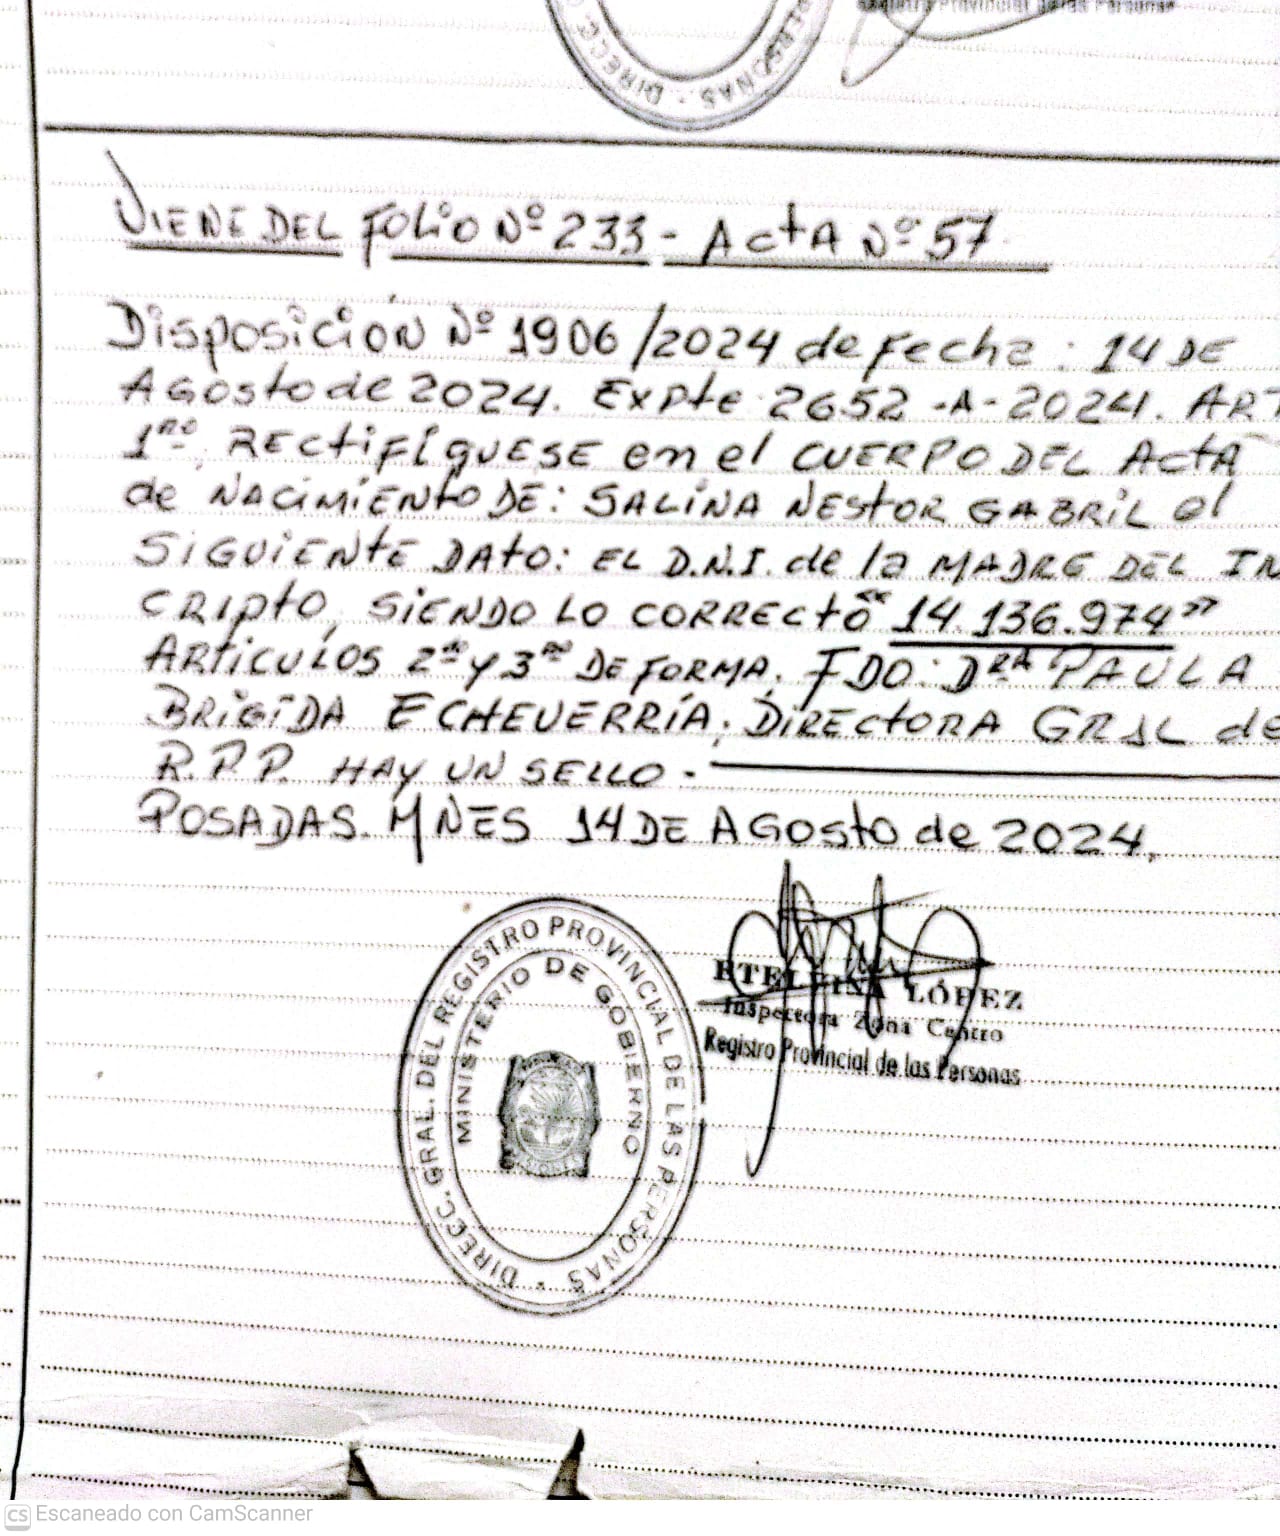 Registro Provincial de las Personas
DIRECC. PERSONAS -
VIENE DEL FOLIO Nº 233 - ACTA Nº 57
Disposición Nº 1906/2024 de Fecha: 14 DE
AGosto de 2024. Expte 2652-A-2024. ART
1ro, RECtifíQUESE en el CUERPO DEL ACtA
de NACiMiENto DE: SALiNA NEStOR GABRiL el
SiGUiENtE DAto: EL D.N.I. de la MADRE DEL IN
CRipto, SiENDO LO CORRECto “14.136.974”
ARtiCULOS 2do y 3ro DE FORMA. FDO: DRA PAULA
BRiGiDA ECHEVERRÍA, DiRECtORA GRAL de
R.P.P. HAY UN SELLO.-
POSADAS. MNES 14 DE AGosto de 2024.
DIRECC. GRAL. DEL REGISTRO PROVINCIAL DE LAS PERSONAS -
MINISTERIO DE GOBIERNO
MISIONES
ETELVINA LÓPEZ
Inspectora Zona Centro
Registro Provincial de las Personas
CS Escaneado con CamScanner